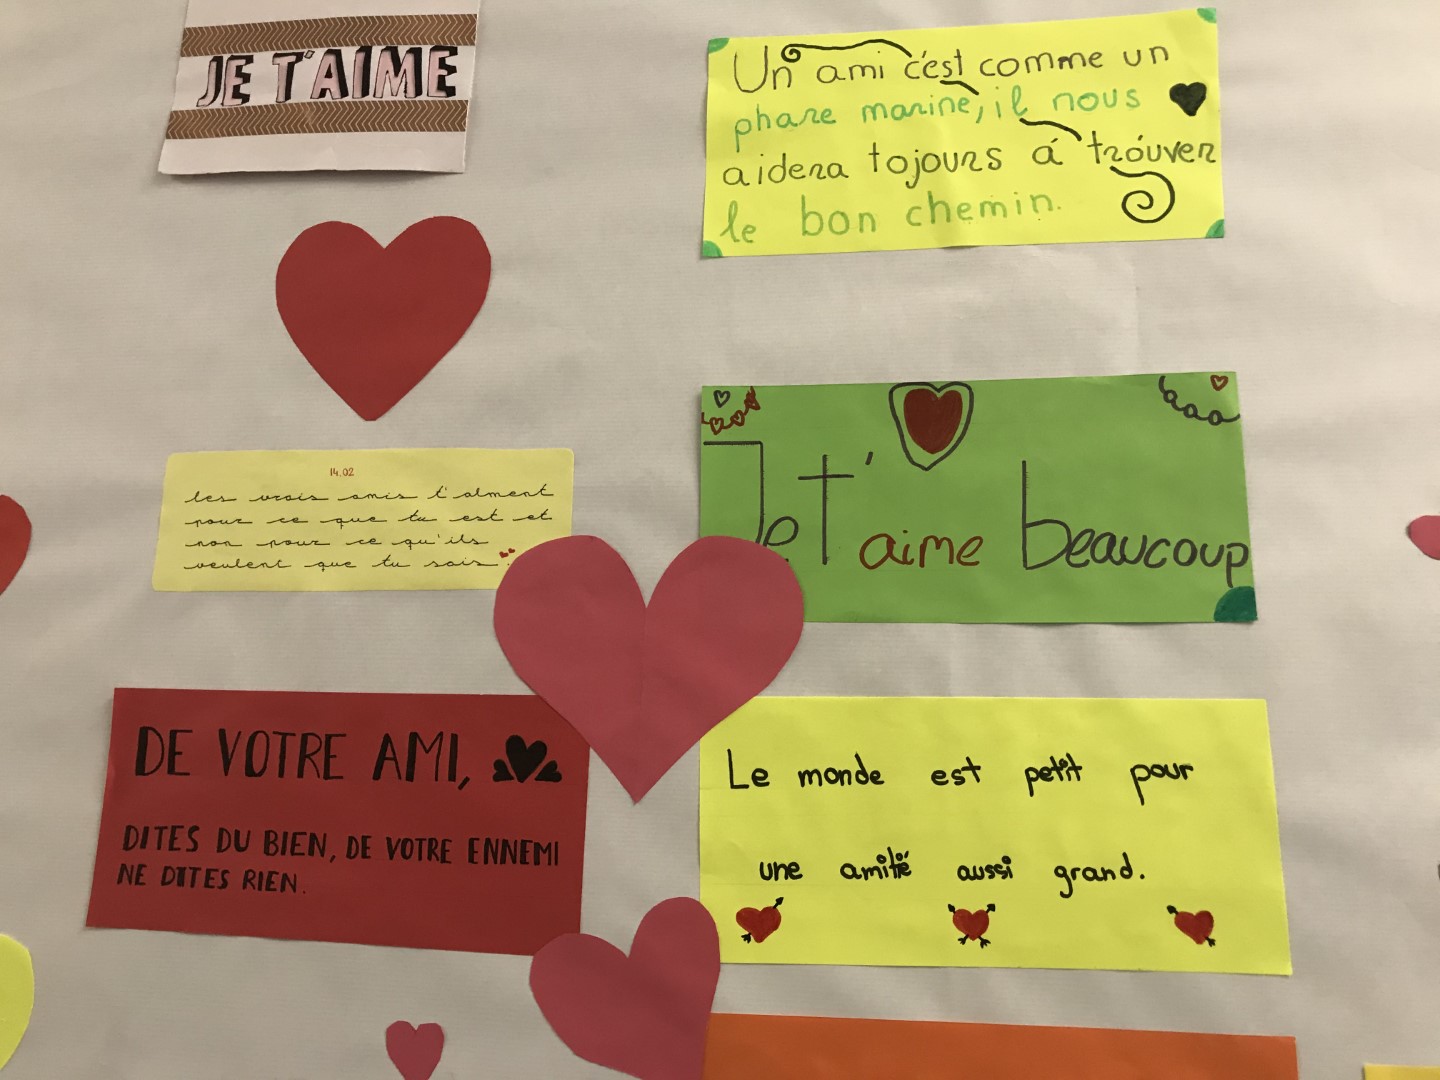 JE T'AIME
Un ami c'est comme un
phare marine, il nous
aidera tojours á tróuver
le bon chemin.
14.02
les vrais amis t'aiment
pour ce que tu est et
non pour ce qu'ils
veulent que tu sois.
Je t'aime beaucoup
DE VOTRE AMI,
DITES DU BIEN, DE VOTRE ENNEMI
NE DITES RIEN.
Le monde est petit pour
une amitié aussi grand.